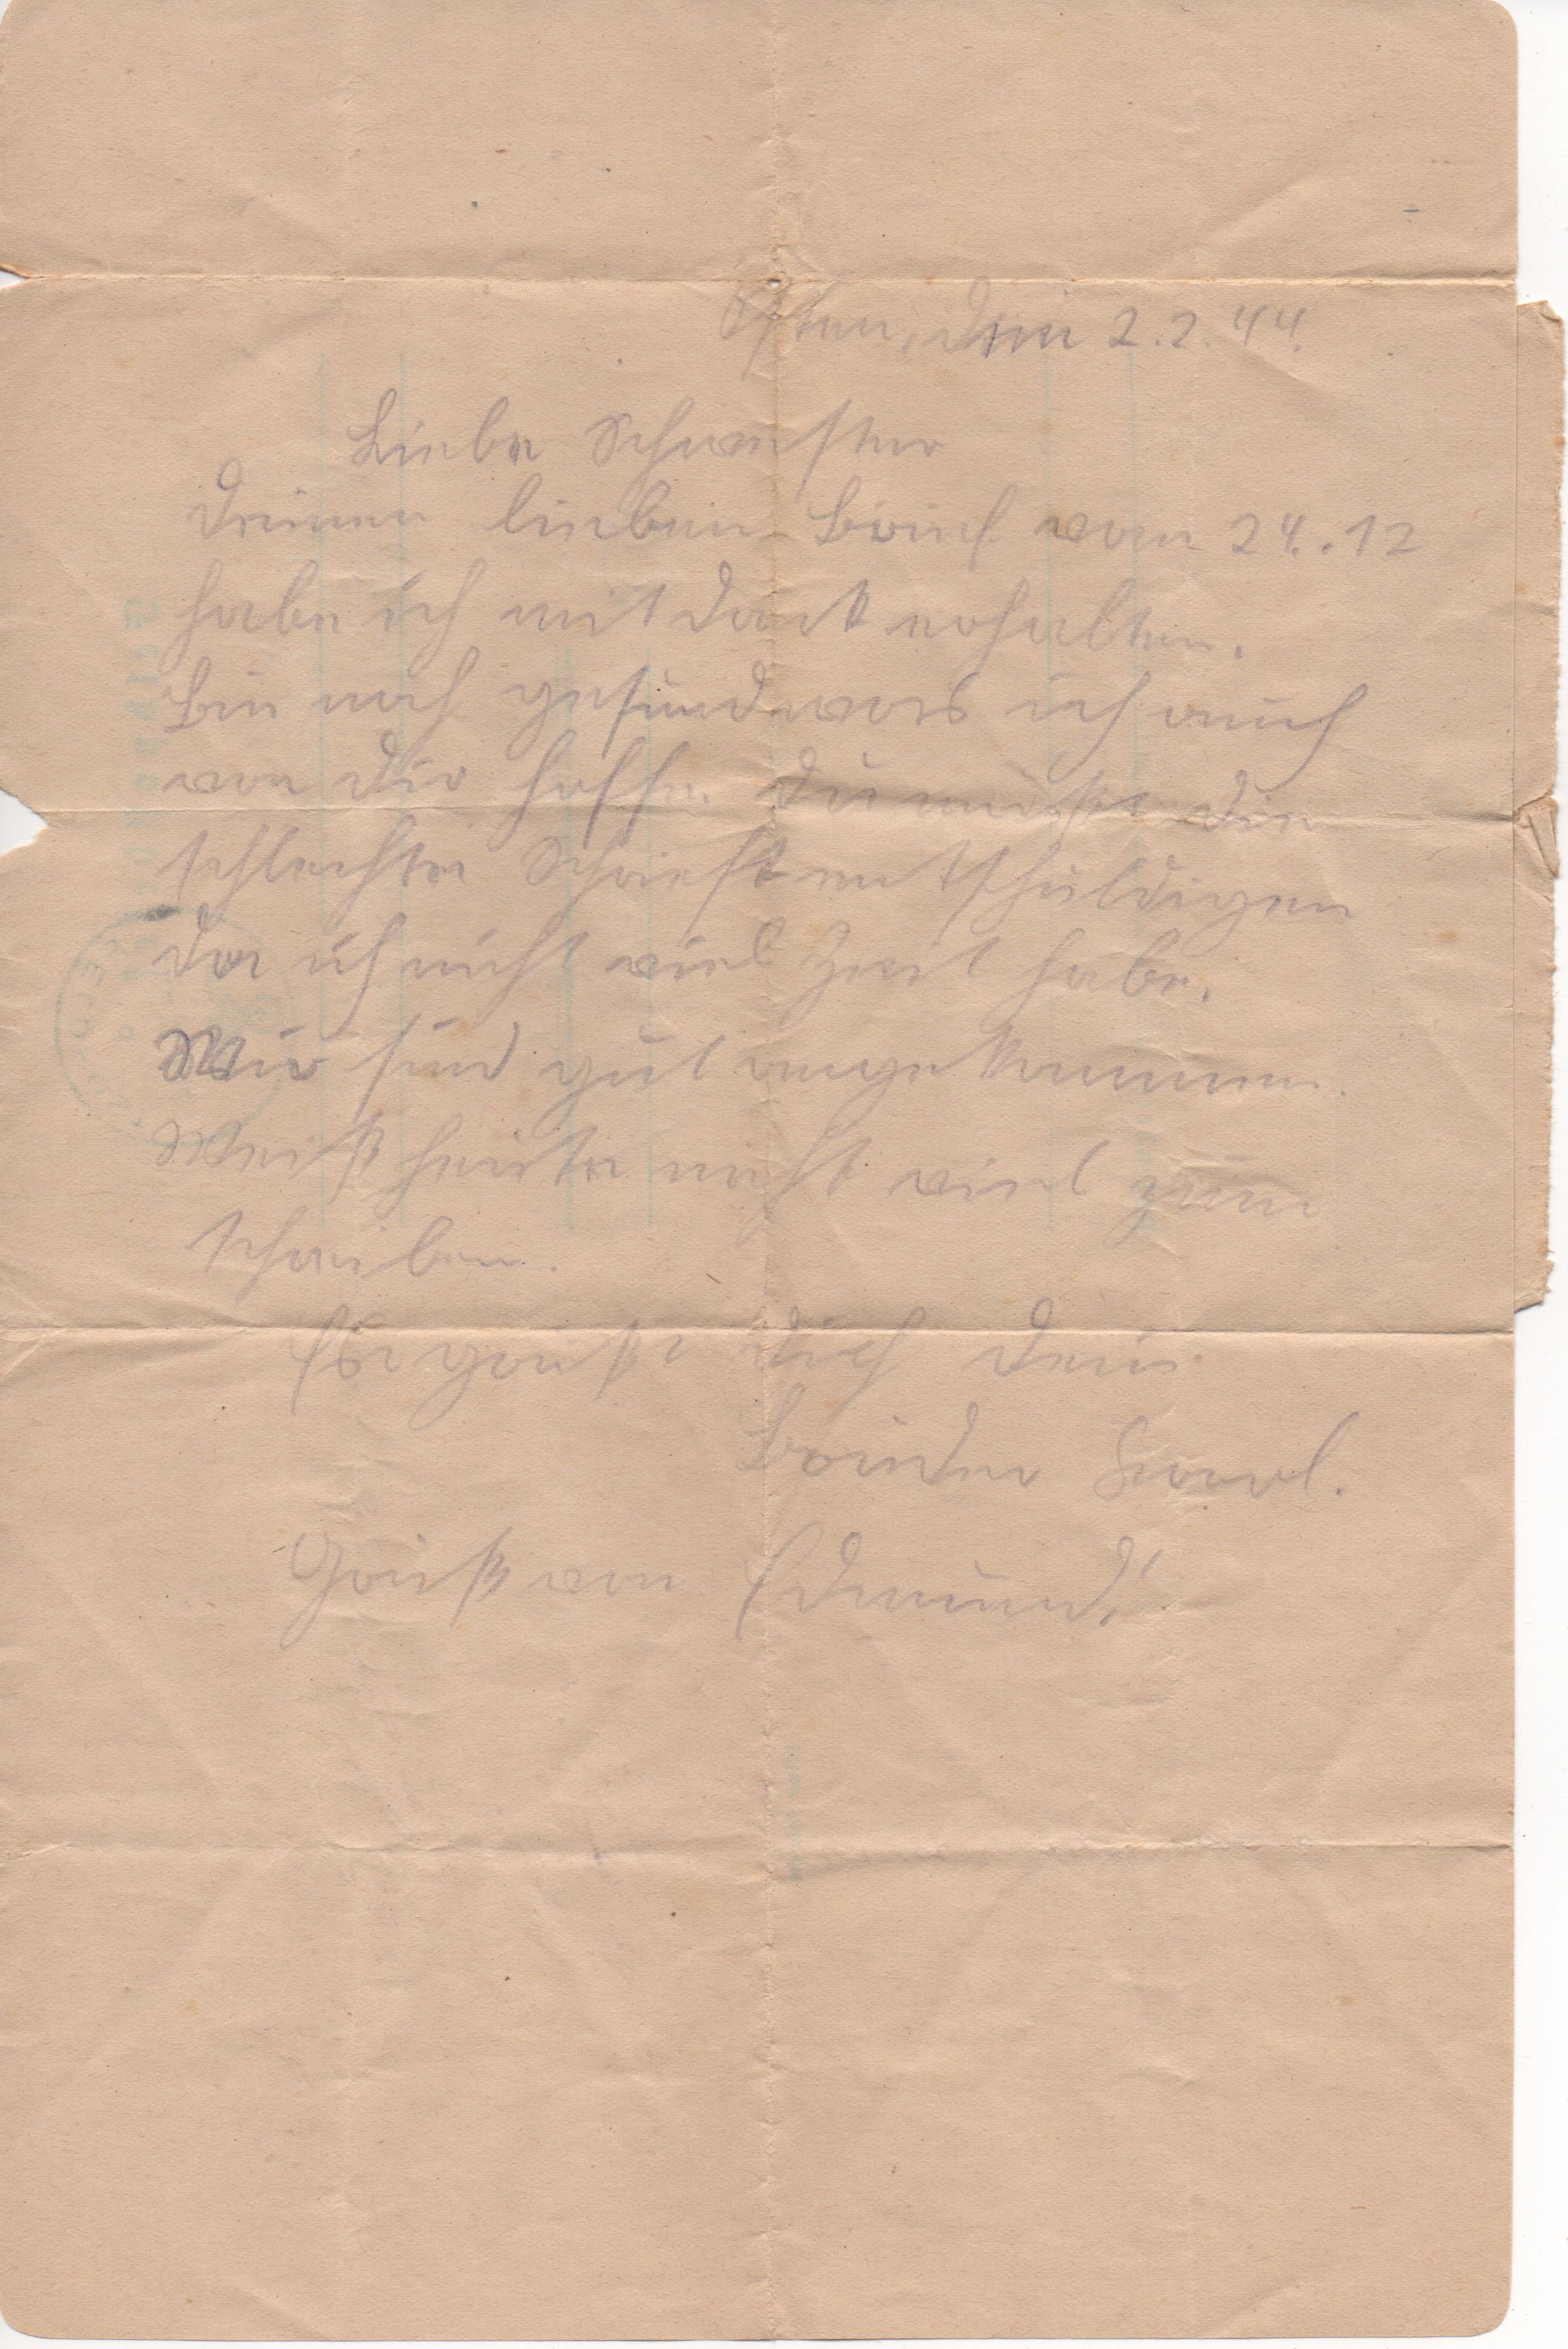 Osten, den 2.2.44.
Liebe Schwester
Deinen lieben Brief vom 24.12
habe ich mit Dank erhalten.
Bin noch gesund was ich auch
von dir hoffe. Du mußt die
schlechte Schrieft entschuldigen
da ich nicht viel Zeit habe.
Wir sind gut angekommen.
Weiß heute nicht viel zum
schreiben.
Es grüßt dich dein
Bruder Karl.
Gruß von Edmund!